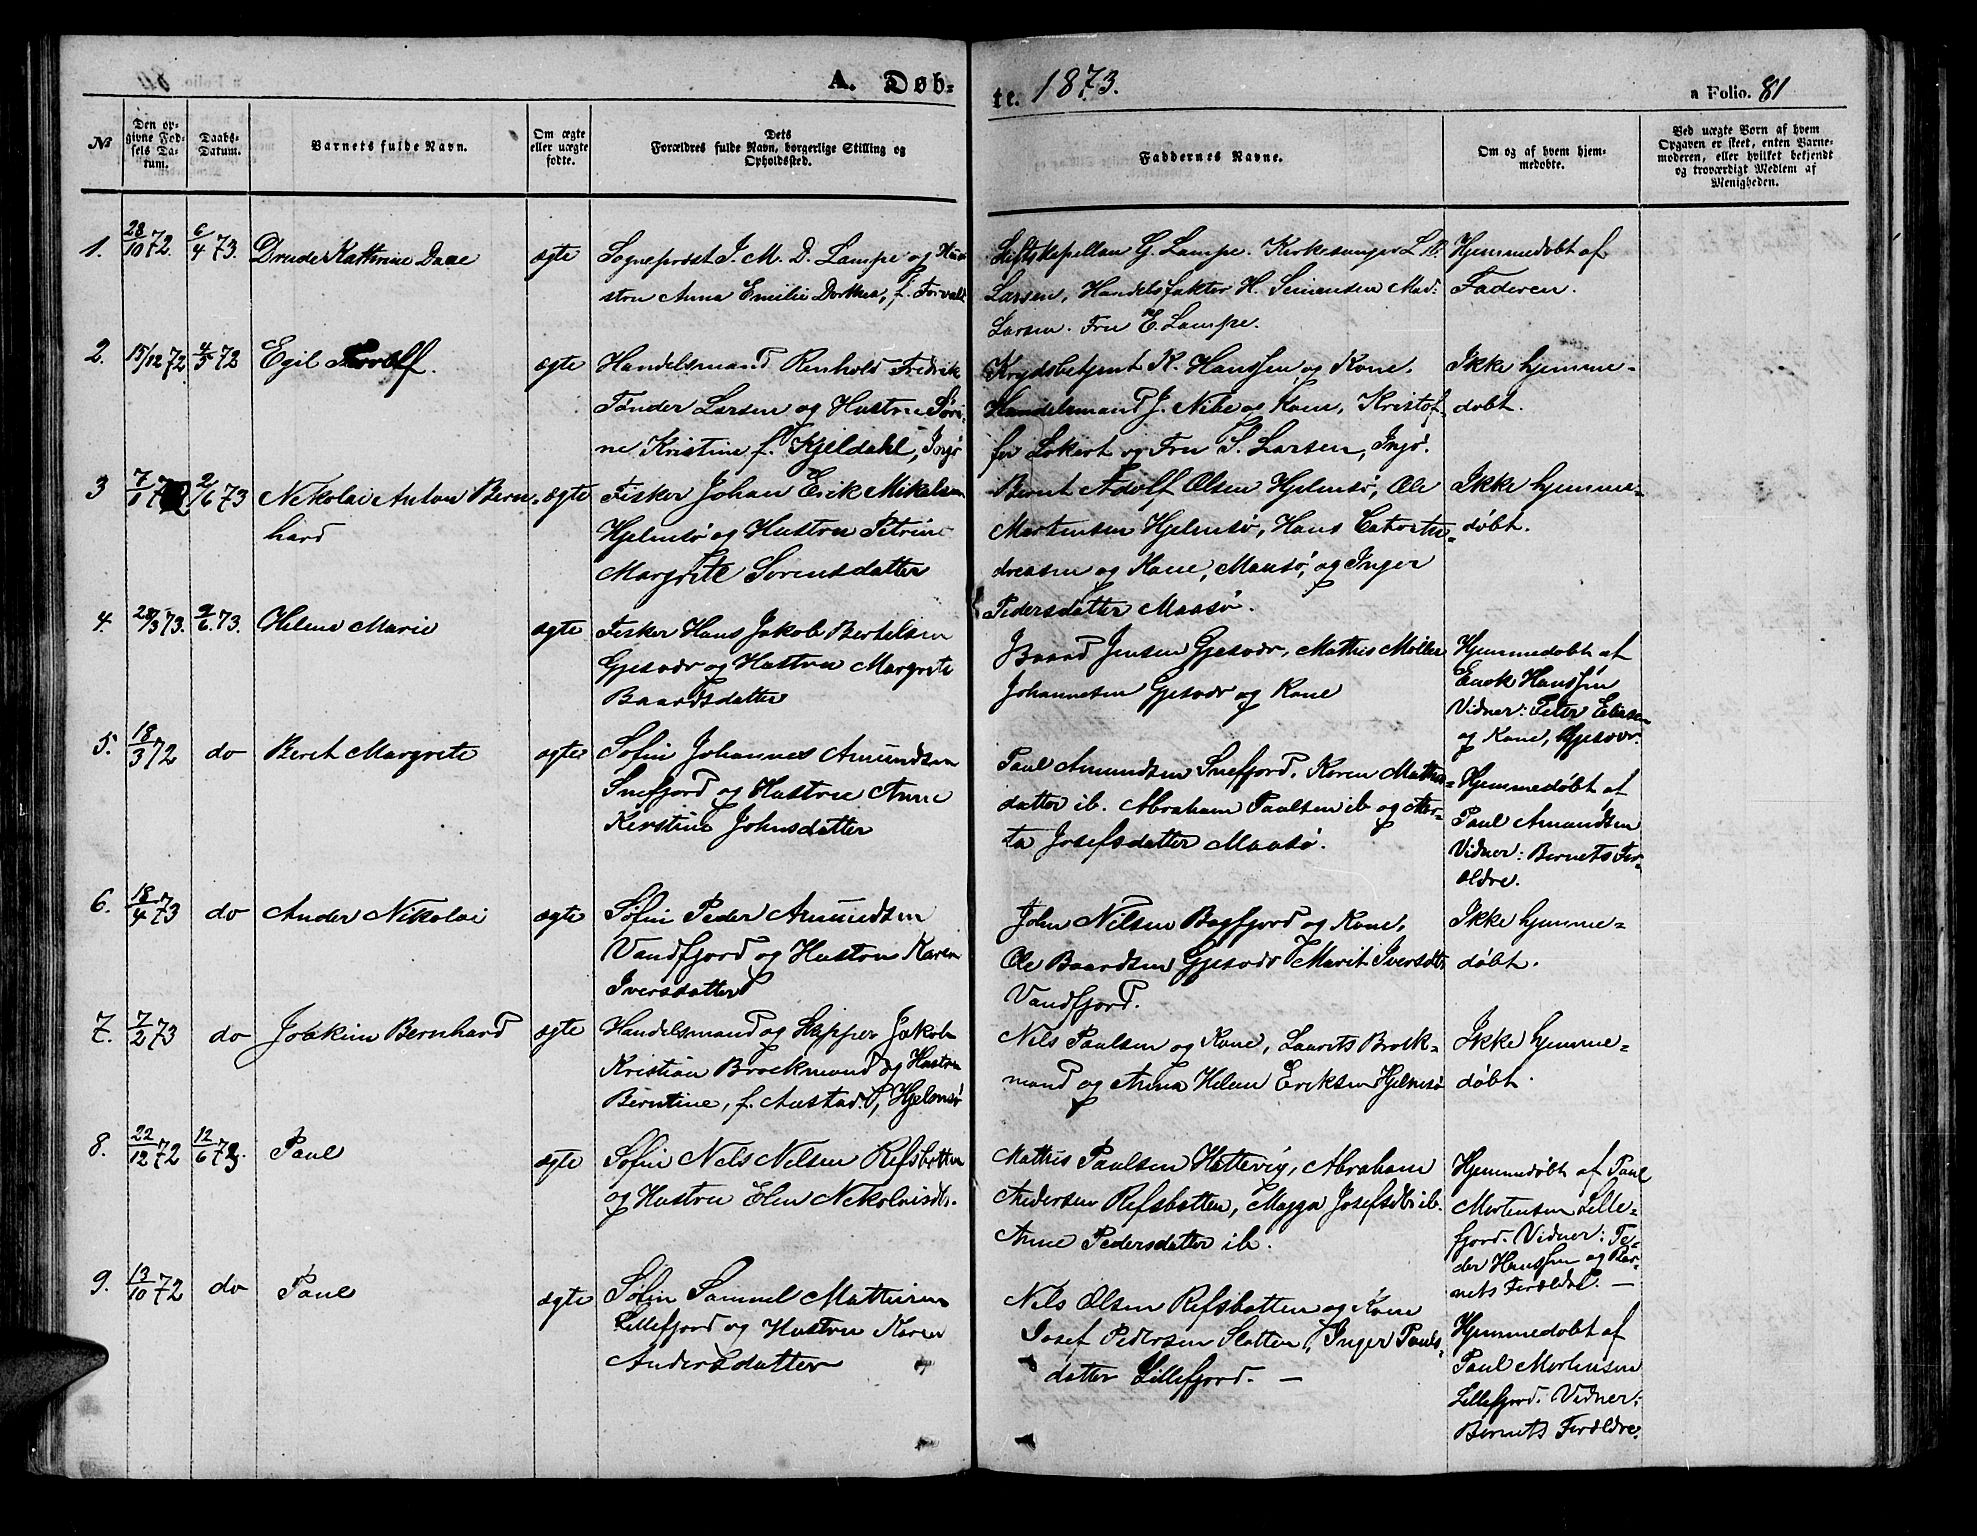 A. Døb-
te. 1873.
a Folio. 81
№
Den op-
givne Fød-
sels Da-
tum.
Daabs-
Datum.
Barnets fulde Navn.
Om ægte
eller uægte
fødte.
Dets
Forældres fulde Navn, borgerlige Stilling og
Opholdssted.
Faddernes Navne.
Om og af hvem hjem-
medøbte.
Ved uægte Børn af hvem
Opgaven er skeet, enten Barne-
moderen, eller hvilket bekjendt
og troværdigt Medlem af
Menigheden.
1. 28/10 72. 6/4 73. Drude Kathrine Daae ægte
Sogneprost J. M. D. Lampe og Hu-
stru Anna Emilie Dorthea, f.
Stiftskapellan G. Lampe. Kirkesanger L.
Larsen, Handelsfaktor H. Simonsen Mad:
Larsen. Fru E. Lampe.
Hjemmedøbt af
Faderen.
2. 15/12 72. 4/5 72 Egil ægte
Handelsmand Renhold Fredrik
Tønder Larsen og Hustru Søri-
ne Kristine f. Kjeldahl, Ingø
Krydsbetjent K. Hanssen og Kone,
Handelsmand J. Nebe og Kone, Kristof-
fer Lokert og Fru S. Larsen, Ingø.
Ikke hjemme-
døbt.
3 7/1 2/6 73 Nikolai Anton Bern- ægte
hard
Fisker Johan Erik Mikelsen
Hjelmsø og Hustru Petrine
Margrete Sørensdatter
Bernt Adolf Olsen Hjelmsø, Ole
Mortensen Hjelmsø, Hans
dreasen og Kone, Maasø, og Inger
Pedersdatter Maasø.
Ikke hjemme-
døbt.
4. 28/3 73. 2/6. 73. Helene Marie ægte
Fisker Hans Jakob Bertelsen
Gjesvær og Hustru Margrete
Baardsdatter
Baard Jensen Gjesvær, Mathis Møller
Johannesen Gjesvær og Kone
Hjemmedøbt af
Enok Hanssen
Vidner: Peter Eliasen
og Kone, Gjesvær.
5. 18/3 72 do Beret Margrete ægte
Søfin Johannes Amundsen
Snefjord og Hustru Anne
Kerstine Johnsdatter
Paul Amundsen Snefjord. Karen Mathis-
datter ib. Abraham Paulsen ib og Mar-
ta Josefsdatter Maasø.
Hjemmedøbt af
Paul Amundsen
Vidner: Barnets For-
ældre.
6. 18/4 73 do Ander Nikolai ægte
Søfin Peder Amundsen
Vandfjord og Hustru Karen
Iversdatter
John Nilsen Bagfjord og Kone,
Ole Baardsen Gjesvær Marit Iversdt.
Vandfjord.
Ikke hjemme-
døbt.
7. 7/2 73 do Joakim Bernhard ægte
Handelsmand og Skipper Jakob
Kristian Brockmand og Hustru
Berntine, f. Austad, Hjelmsø
Nils Paulsen og Kone, Laurits Brock-
mand og Anna Helene Eriksen Hjelmsø
Ikke hjemme-
døbt.
8. 22/12 72 12/6 73. Paul ægte
Søfin Nels Nelsen Refsbotten
og Hustru Elen Nekolaisdt.
Mathis Paulsen Hattevig, Abraham
Andersen Refsbotten, Magga Josefsdt. ib.
Anne Pedersdatter ib.
Hjemmedøbt af Paul
Mortensen Lille-
fjord. Vidner: Pe-
der Hanssen og Bar-
nets Forældre. —
9. 13/10 72 do Paul ægte
Søfin Samuel Mathisen
Lillefjord og Hustru Karen
Andersdatter
Nils Olsen Refsbotten og Kone
Josef Pedersen Slotten, Inger Pauls-
datter Lillefjord. —
Hjemmedøbt af
Paul Mortensen
Lillefjord. Vidner:
Barnets Forældre.